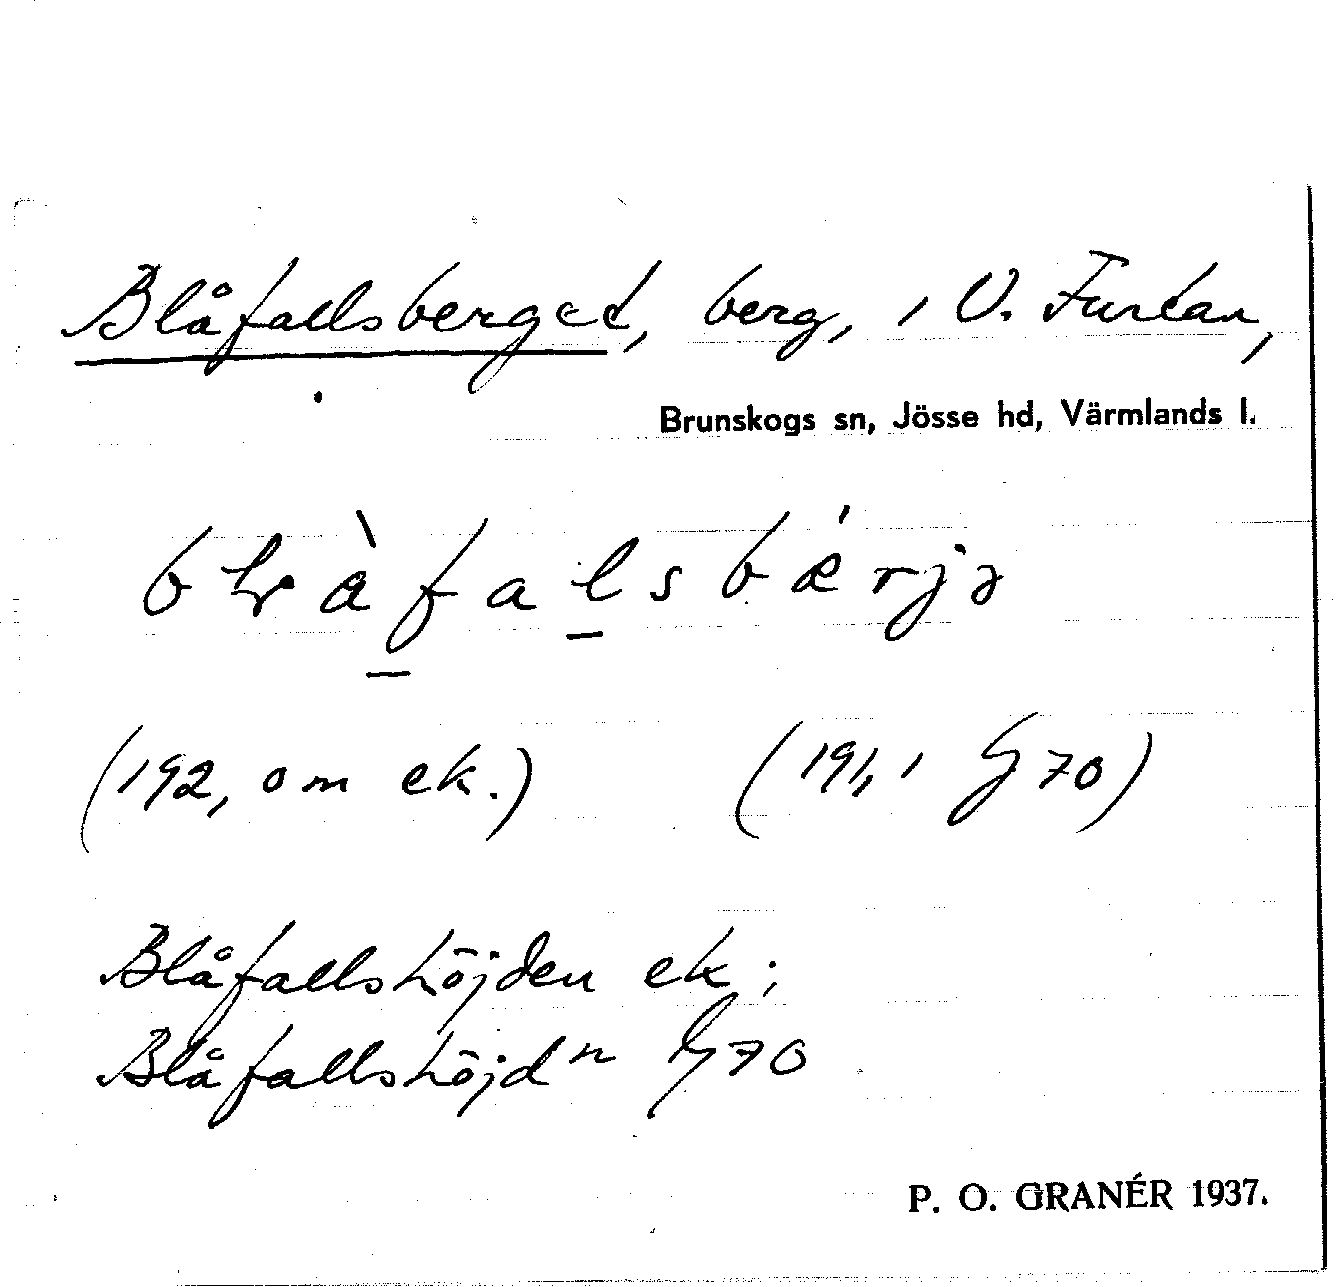 Blåfallsberget, berg, i V. Furtan,
Brunskogs sn, Jösse hd, Värmlands l.
(192, om ek.) (191, i G 70)
Blåfallshöjden ek;
Blåfallshöjdn G 70
P. O. GRANÉR 1937.